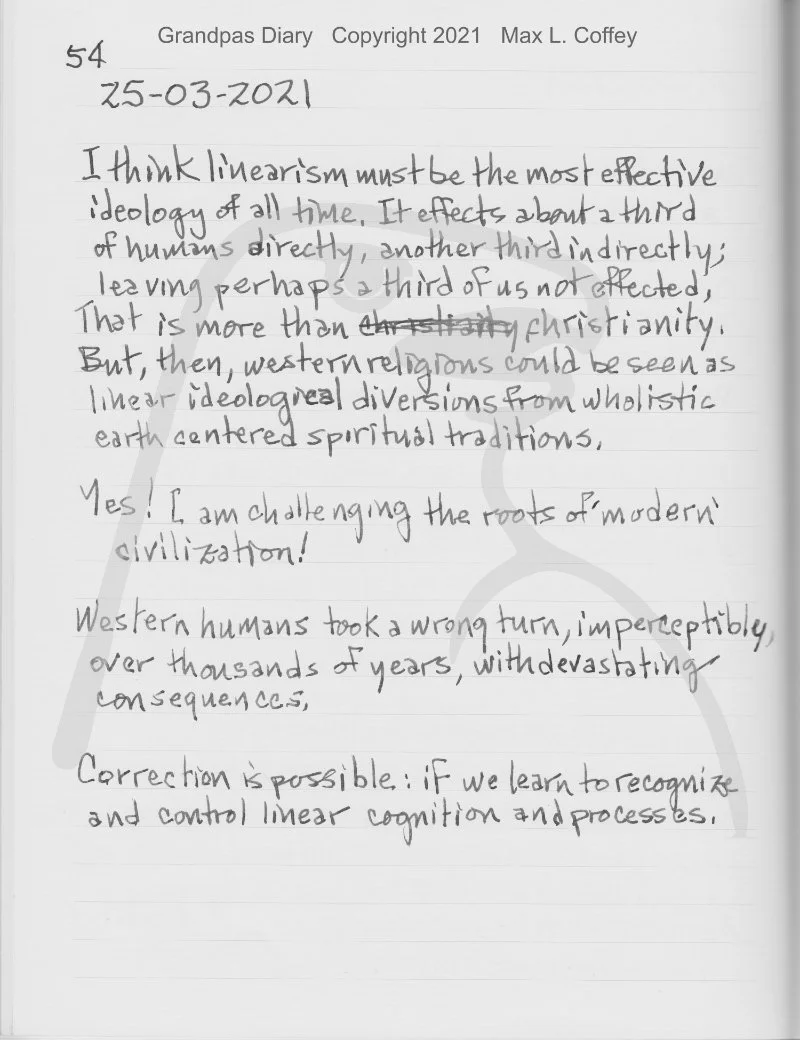 Grandpas Diary Copyright 2021 Max L. Coffey
54
25-03-2021
I think linearism must be the most effective
ideology of all time. It effects about a third
of humans directly, another third indirectly;
leaving perhaps a third of us not effected,
That is more than christianity christianity.
But, then, western religions could be seen as
linear ideological diversions from wholistic
earth centered spiritual traditions.
Yes! I am challenging the roots of 'modern'
civilization!
Western humans took a wrong turn, imperceptibly,
over thousands of years, with devastating
consequences.
Correction is possible: if we learn to recognize
and control linear cognition and processes.